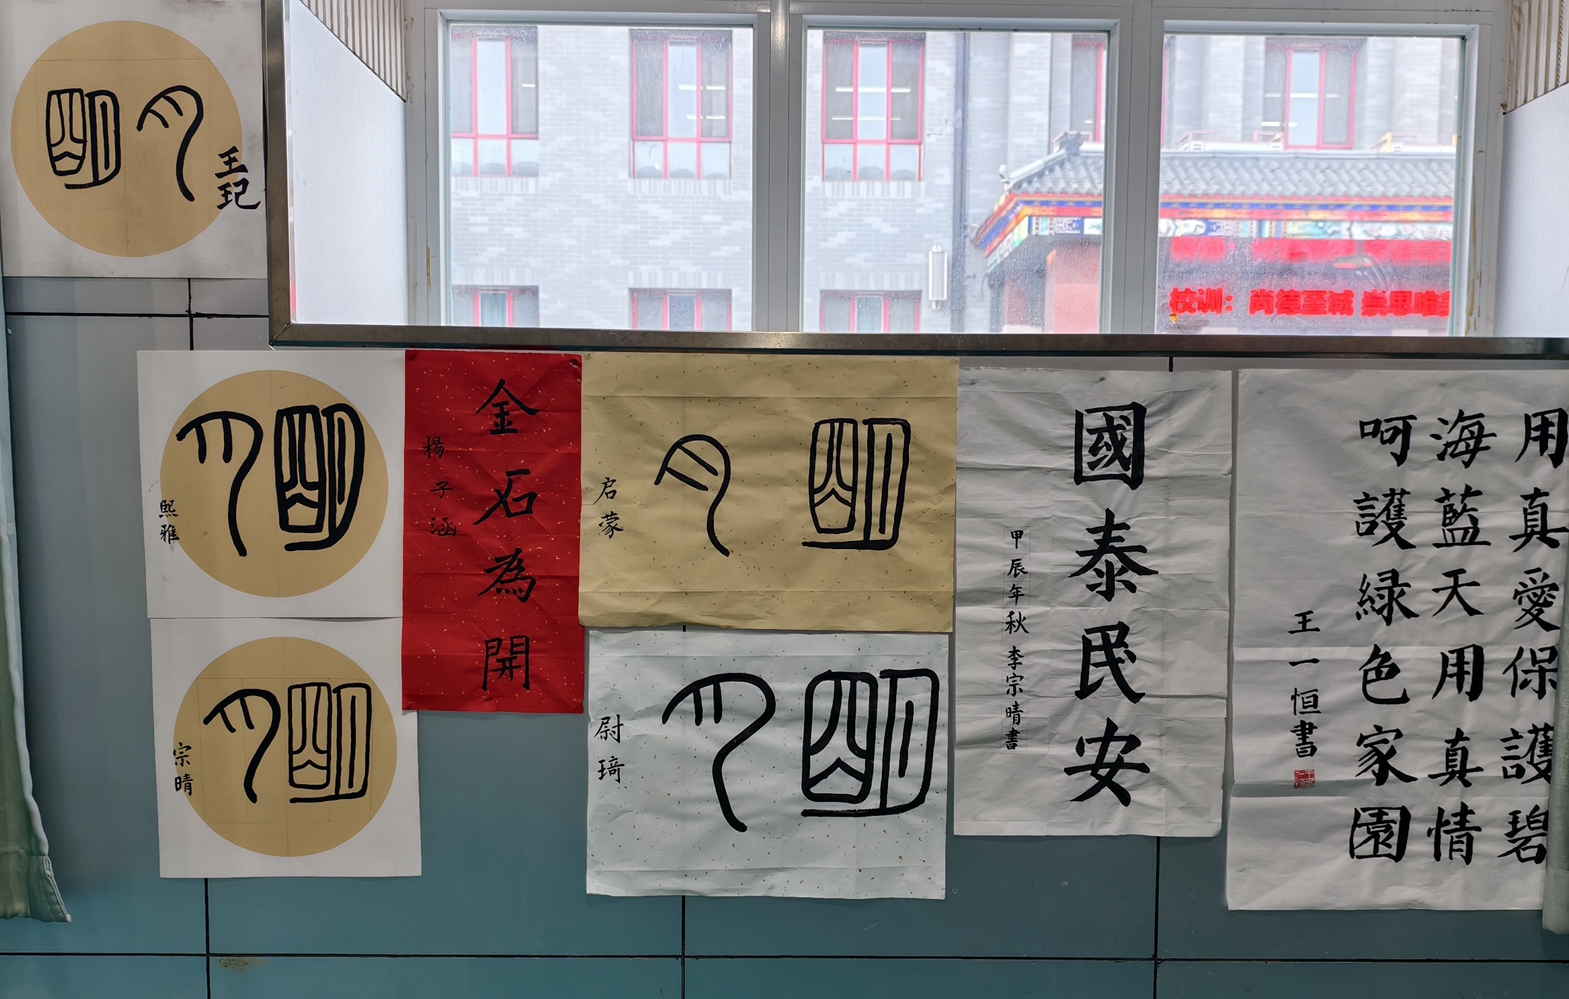 明月
王玘
校训：尚德至诚 崇思唯
明月
熙雅
明月
宗晴
金石為開
楊子涵
明月
启蒙
明月
尉琦
國泰民安
甲辰年秋 李宗晴書
用真愛保護碧
海藍天用真情
呵護緑色家園
王一恒書